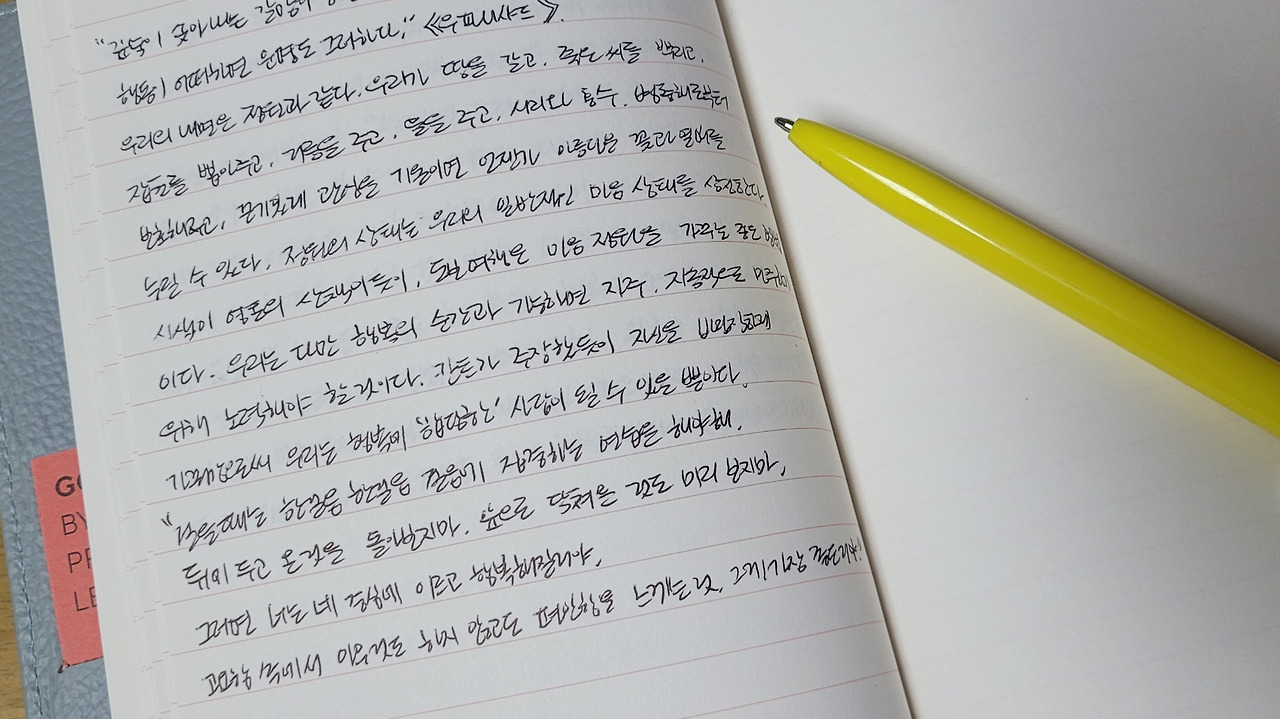 행동이 어떠하면 운명도 그러하다." 《우파니샤드》.
우리의 내면은 정원과 같다. 우리가 땅을 갈고, 좋은 씨를 뿌리고,
잡초를 뽑아주고, 거름을 주고, 물을 주고, 서리와 홍수, 병충해로부터
보호해주고, 끈기있게 관심을 기울이면 언젠가 아름다운 꽃과 열매를
누릴 수 있다. 정원의 상태는 우리의 일반적인 마음 상태를 상징한다
시색이 영혼의 산책이듯이, 도보여행은 마음 정원을 가꾸는 좋은
이다. 우리는 다만 행복의 순간과 가능하면 자주, 지속적으로
위해 노력해야 할 것이다. 칸트가 주장했듯이 자신을
그럼으로써 우리는 행복에 '합당한' 사람이 될 수 있을 뿐이다.
"걸을 때는 한걸음 한걸음 걸음에 집중하는 연습을 해야해.
뒤에 두고 온 것을 돌아보지마. 앞으로 닥쳐올 것도 미리 보지마.
그러면 너는 네 중심에 이르고 행복해질거야.
고요함 속에서 아무것도 하지 않고도 평안함을 느끼는 것, 그게 가장
GO
BY
PR
LE